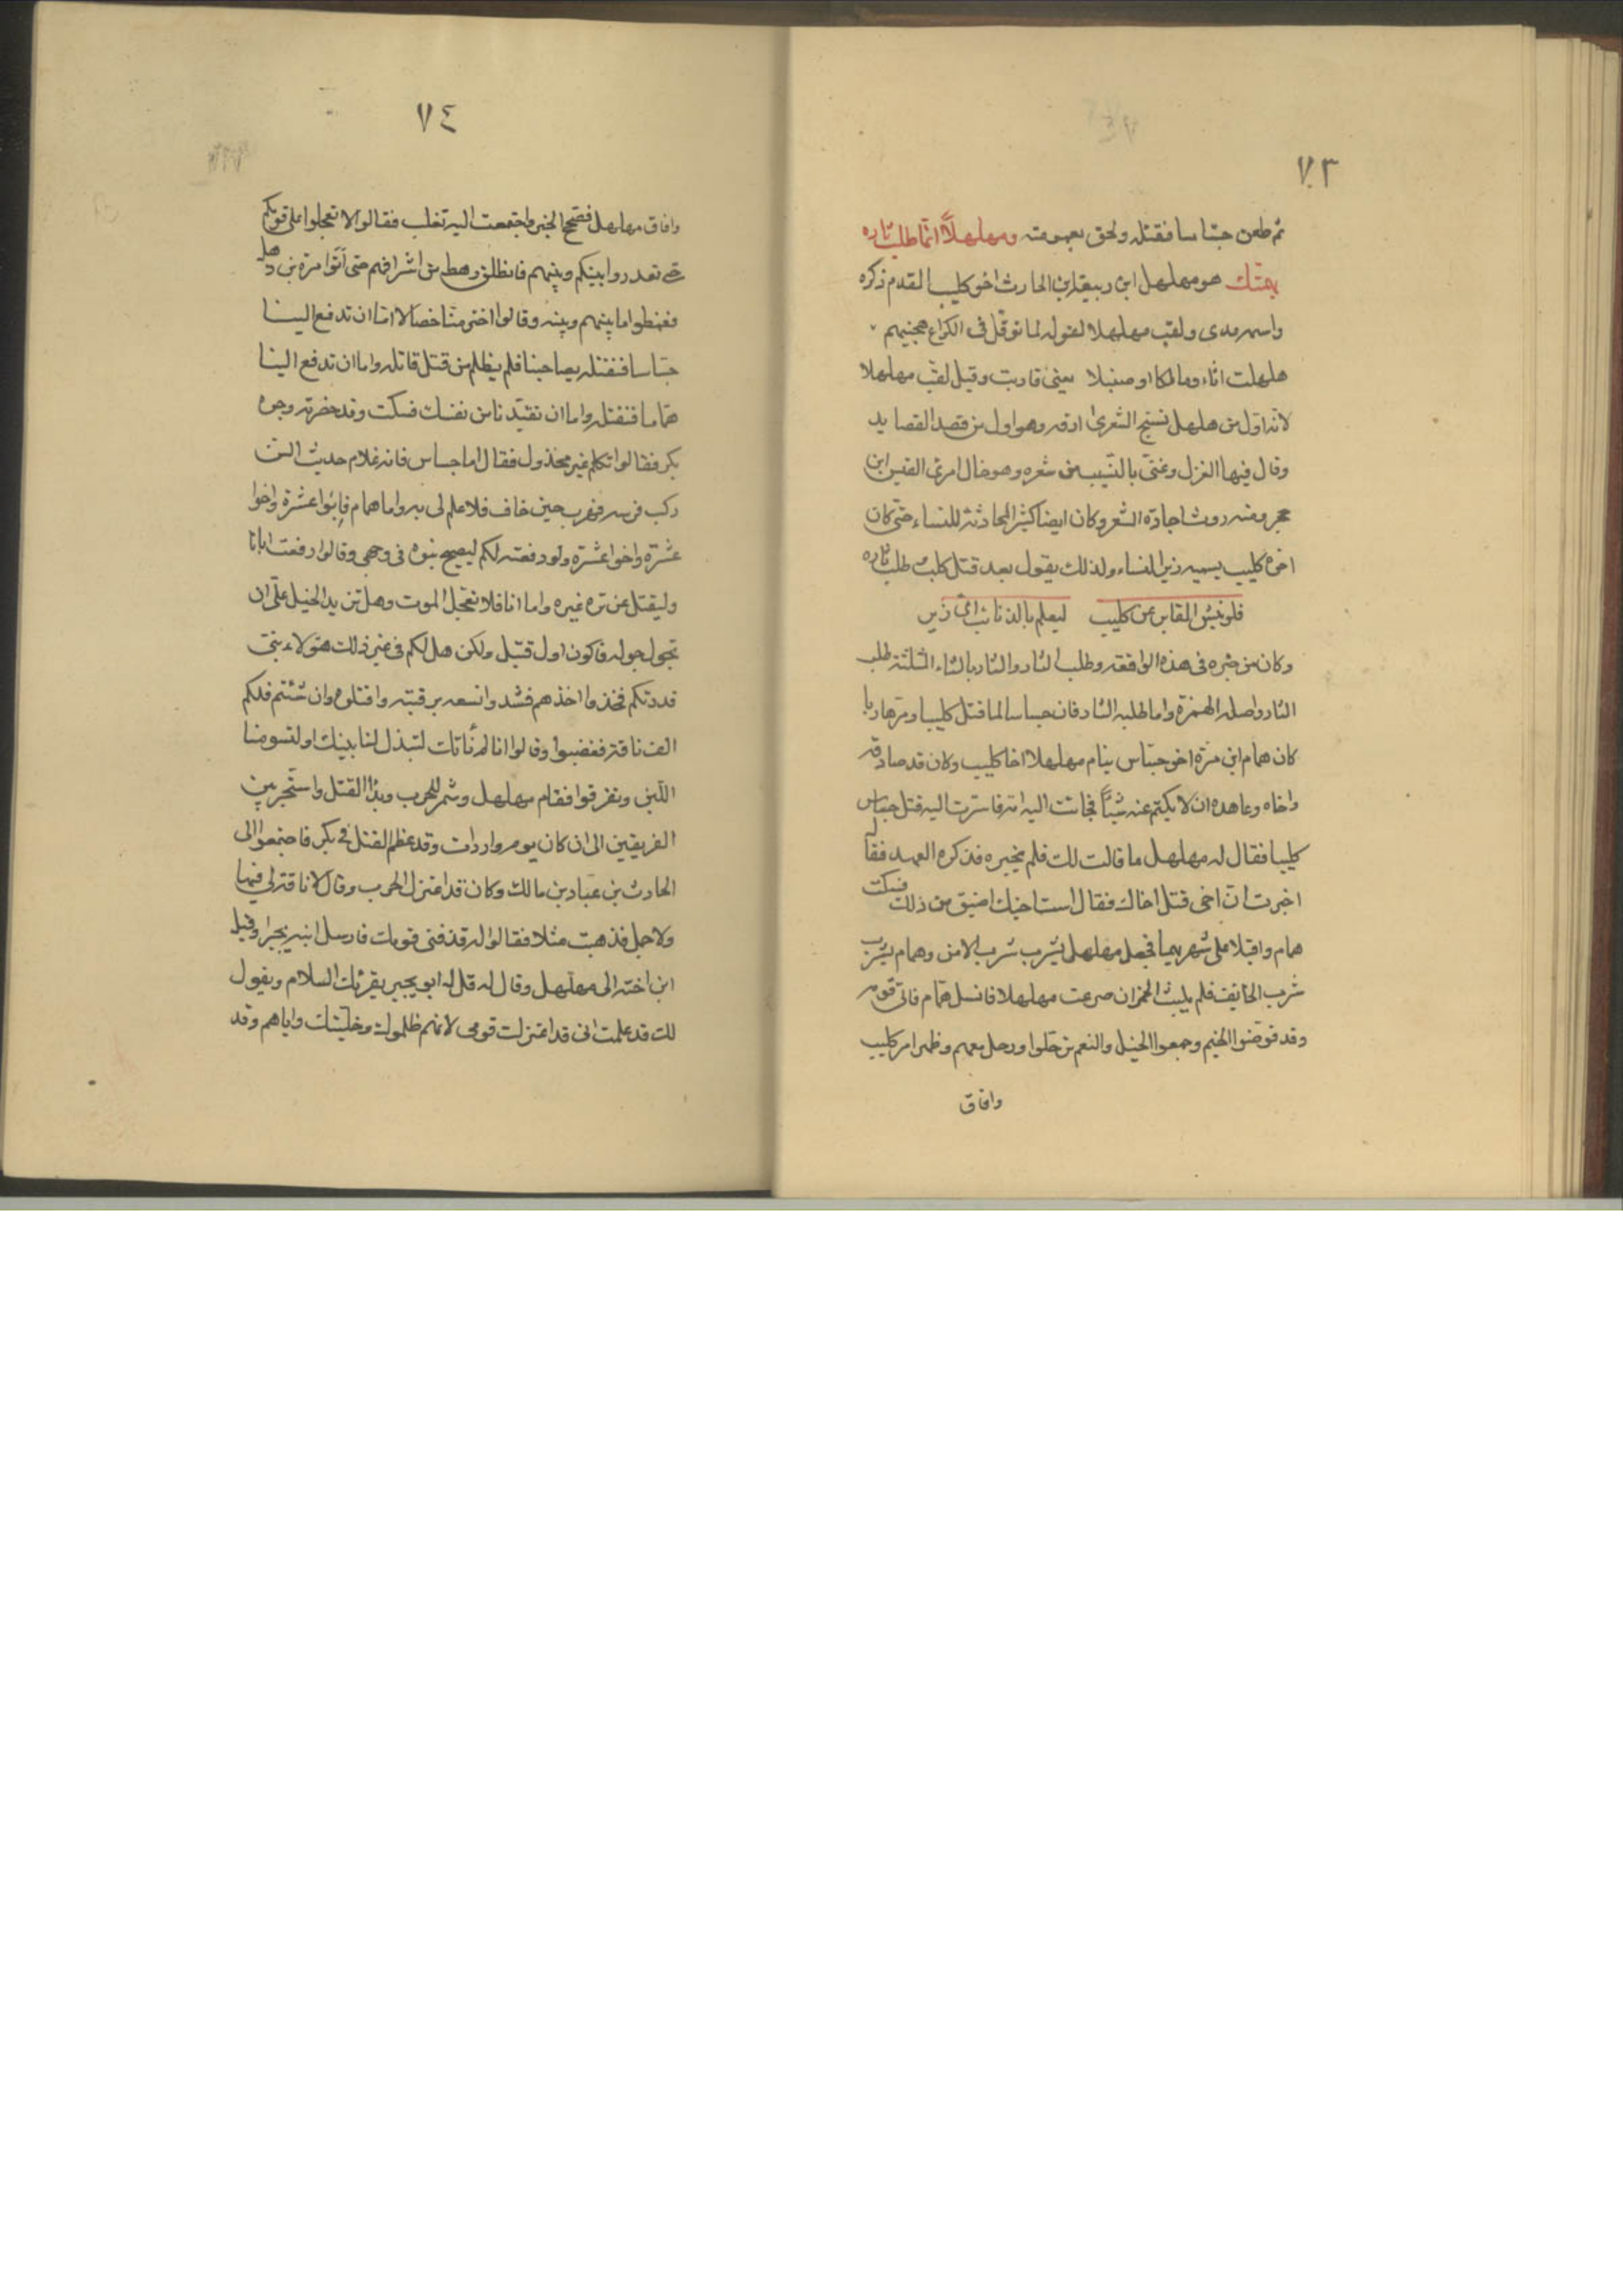 ٧٣
ثم طعن جساسا فقتله ولحق بعمومته ومهلهلا انما طلب ثاره
بهمتك هو مهلهل ابن ربيعة ابن الحارث اخو كليب المقدم ذكره
واسمه عدى ولقب مهلهلا لقوله لما توقل فى الكراع هجينهم
هلهلت اثاء ومالكا او صنبلا يعنى قاربت وقيل لقب مهلهلا
لانه اول من هلهل نسج الشعر اى ارقه وهو اول من قصد القصايد
وقال فيها الغزل وغنى بالنسيب من شعره وهو خال امرئ القيس ابن
حجر ومنه روث اجادة الشعر وكان ايضا كثير المحادثة للنساء حتى كان
اخوه كليب يسميه زير النساء ولذلك يقول بعد قتل كليب طلب ثاره
فلو نبش المقابر عن كليب ليعلم بالذنائب اى زير
وكان من خبره فى هذه الواقعة وطلب الثار والثار بالثاء المثلثة طلب
الثار واصله الهمزة واما طلبه الثار فان جساسا لما قتل كليبا ومر هاربا
كان همام ابن مرة اخو جساس ينام مهلهلا اخا كليب وكان قد صادقه
واخاه وعاهده ان لا يكتم عنه شيأ فجائت اليه امه فاسرت اليه قتل جساس
كليبا فقال له مهلهل ما قالت لك فلم يخبره فذكره العهد فقال
اخبرت ان اخى قتل اخاك فقال است اخيك اضيق من ذلك فسكت
همام واقبلا على شهر بهما فجعل مهلهل يشرب شرب الامن وهمام يشرب
شرب الخايف فلم يلبث الخمر ان صرعت مهلهلا فانسل همام فاتى قومه
وقد قوضوا الخيم وجمعوا الخيل والنعم ثم حلوا ورحل معهم وظهر امر كليب
وافاق
٧٤
وافاق مهلهل فصح الخبر واجتمعت اليه تغلب فقالوا لا تعجلوا على قومكم
حتى تعدروا بينكم وبينهم فانطلق رهط من اشرافهم حتى أتوا مرة بن ذهل
فعظموا ما بينهم وبينه وقالوا اختر منا خصالا اما ان تدفع الينا
جساسا فنقتله بصاحبنا فلم يظلم من قتل قاتله واما ان تدفع الينا
هماما فنقتله واما ان تقيدنا من نفسك فسكت وقد حضرته وجوه
بكر فقالوا تكلم غير مخذول فقال اما جساس فانه غلام حديث السن
ركب فرسه فهرب حين خاف فلا علم لى به واما همام فابو عشرة واخو
عشرة واخو اعشرة ولو دفعته لكم ليصيح بنوه فى وجهى وقالوا دفعت ابانا
وليقتل عن تره غيره واما انا فلا نتعجل الموت وهل تزيد الخيل على ان
تجول جوله فاكون اول قتيل ولكن هل لكم فى غير ذلك هؤلاء بنى
قدرتكم فخذوا احدهم فشدوا نسعه برقبته واقتلوه وان شئتم فلكم
الف ناقة فغضبوا وقالوا انا لم نأتك لتبذل لنا بنيك او لتسومنا
اللبن وتفرقوا فقام مهلهل وشمر للحرب وبدأ القتل واستحر بين
الفريقين الى ان كان يوم واردات وقد عظم القتل فى بكر فاجتمعوا الى
الحارث بن عباد بن مالك وكان قد اعتزل الحرب وقال لا ناقة لى فيها
ولا جمل فذهبت مثلا فقالوا له قد فنى قومك فارسل ابنه بجير اوقيل
ابن اخته الى مهلهل وقال له قل له ابو بجير يقرئك السلام ويقول
لك قد علمت انى قد اعتزلت قومى لانهم ظلموك وخليتك واياهم وقد